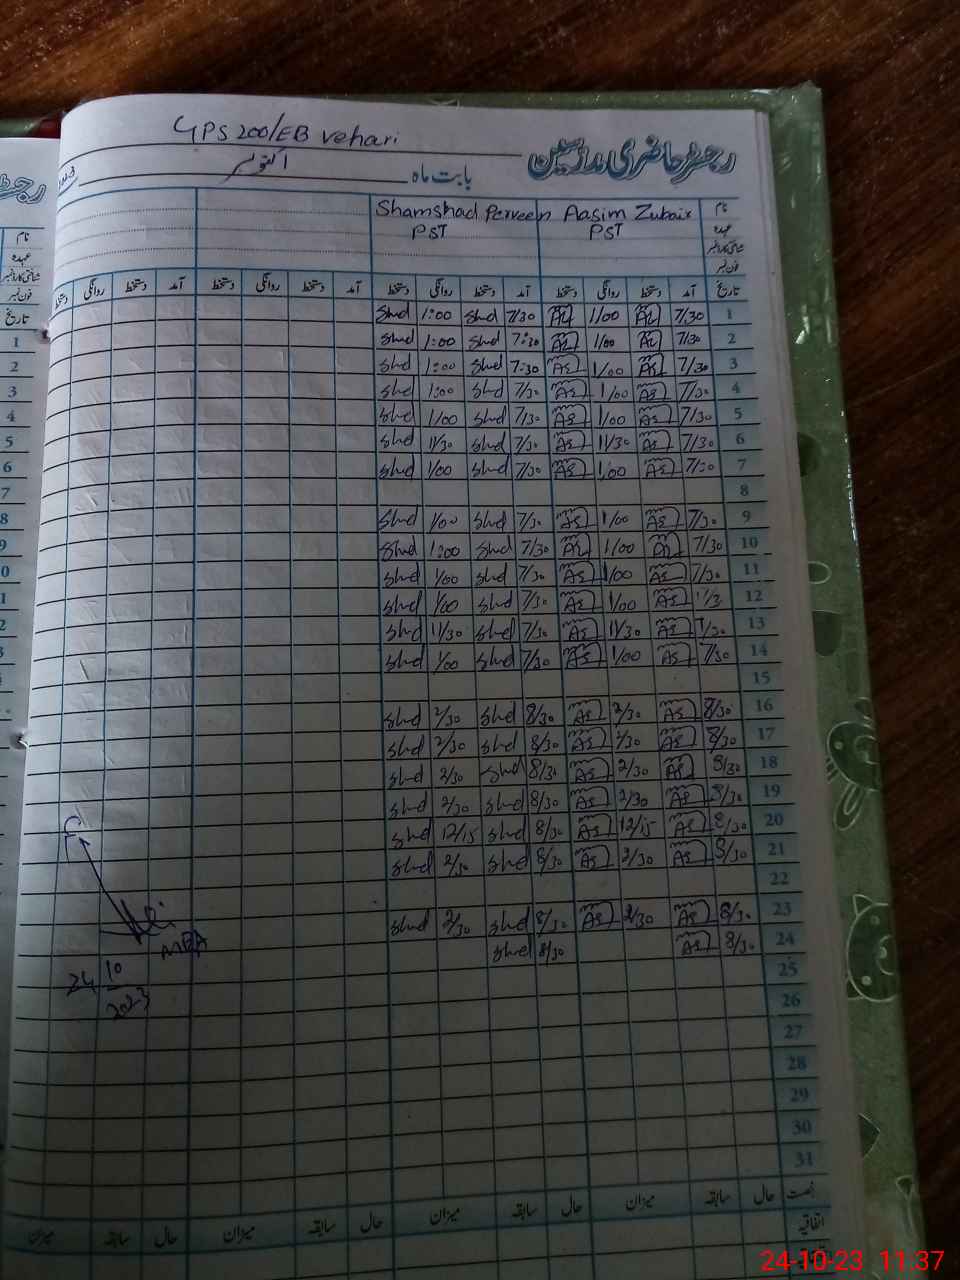 GPS 200/EB vehari
رجسٹر حاضری مدرسین
بابت ماہ اکتوبر
Shamshad Perveen Aasim Zubair نام
PST PST عہدہ
شناختی کارڈ نمبر
فون نمبر
تاریخ آمد دستخط روانگی دستخط آمد دستخط روانگی دستخط آمد دستخط روانگی دستخط آمد دستخط روانگی دستخط
Shd 1:00 Shd 7/30 1/00 7/30 1
Shd 1:00 Shd 7:30 1/00 7/30 2
Shd 1:00 Shd 7:30 1/00 7/30 3
Shd 1:00 Shd 7/30 1/00 7/30 4
Shd 1/00 Shd 7/30 1/00 7/30 5
Shd 11/30 Shd 7/30 11/30 7/30 6
Shd 1/00 Shd 7/30 1/00 7/30 7
8
Shd 1/00 Shd 7/30 1/00 7/30 9
Shd 1:00 Shd 7/30 1/00 7/30 10
Shd 1/00 Shd 7/30 1/00 7/30 11
Shd 1/00 Shd 7/30 1/00 12
Shd 11/30 Shd 7/30 11/30 7/30 13
Shd 1/00 Shd 7/30 1/00 7/30 14
15
Shd 2/30 Shd 8/30 2/30 8/30 16
Shd 2/30 Shd 8/30 2/30 8/30 17
Shd 2/30 Shd 8/30 2/30 8/30 18
Shd 2/30 Shd 8/30 2/30 8/30 19
Shd 12/15 Shd 8/30 12/15 8/30 20
Shd 2/30 Shd 8/30 2/30 8/30 21
22
Shd 2/30 Shd 8/30 2/30 8/30 23
Shd 8/30 8/30 24
MEA
24 10
2023
25
26
27
28
29
30
31
رخصت حال سابقہ میزان حال سابقہ میزان حال سابقہ میزان حال سابقہ میزان
اتفاقیہ
24-10-23 11.37